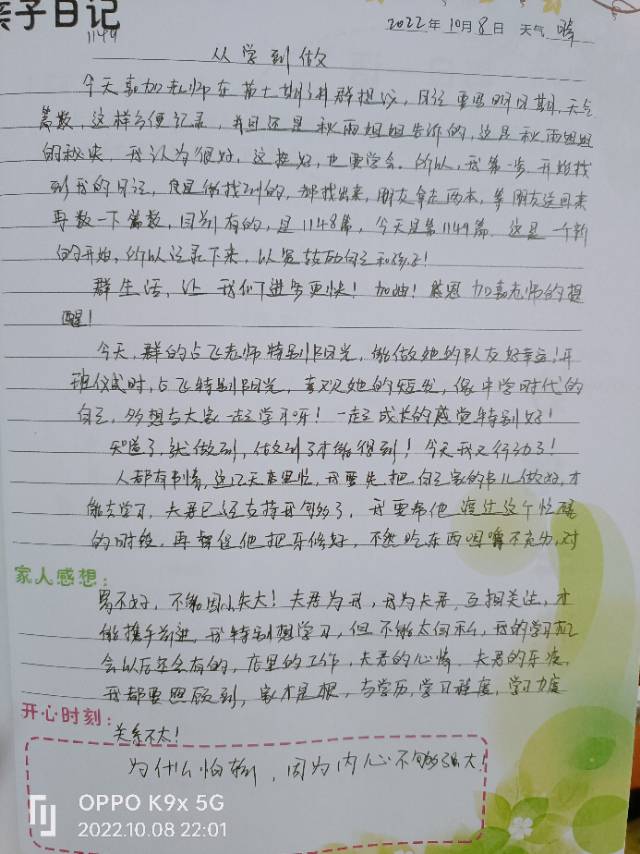 亲子日记
2022年10月8日 天气 晴
1149
从学到做
今天嘉加老师在第七期讲群提议，日记要写明日期，天气
篇数，这样方便记录，并且还是秋雨姐姐告诉的，这是秋雨姐姐
的秘诀，我认为很好，这挺好，也要学会。所以，我第一步，开始找
到我的日记，只是能找到的，都找出来，朋友拿走两本，等朋友送回来
再数一下篇数，目前有的，是1148篇，今天是第1149篇，这是一个新
的开始，所以记录下来，以鼓励自己和孩子！
群生活，让我们进步更快！加油！感恩加嘉老师的提
醒！
今天，群的占飞老师特别阳光，能做她的队友好幸运！开
班仪式时，占飞特别阳光，喜欢她的短发，像中学时代的
自己，多想与大家一起学习呀！一起成长的感觉特别好！
知道了，就做到，做到了才能得到！今天我又行动了！
人都有事情，这几天店里忙，我要先把自己家的事儿做好，才
能去学习，夫君已经支持我够多了，我要帮他渡过这个忙碌
的时段，再督促他把牙修好，不然吃东西咀嚼不充分，对
家人感想：
胃不好，不能因小失大！夫君为我，我为夫君，互相关注，才
能携手前进，我特别想学习，但不能太自私，我的学习机
会以后还会有的，店里的工作，夫君的心情，夫君的牙齿，
我都要照顾到，家才是根，与学历，学习程度，学习力度
开心时刻：
关系不大！
为什么怕输，因为内心不够强大！
OPPO K9x 5G
2022.10.08 22:01